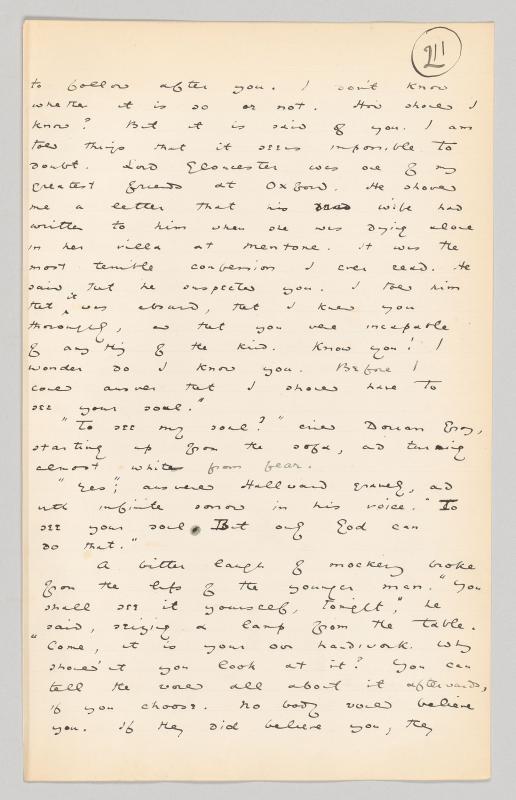 211
to follow after you. I don't know
whether it is so or not. How should I
know? But it is said of you. I am
told things that it seems impossible to
doubt. Lord Gloucester was one of my
greatest friends at Oxford. He showed
me a letter that his wife had
written to him when she was dying alone
in her villa at Mentone. It was the
most terrible confession I ever read. He
said that he suspected you. I told him
that it was absurd, that I knew you
thoroughly, and that you were incapable
of anything of the kind. Know you! I
wonder do I know you. Before I
could answer that I should have to
see your soul."
"To see my soul?" cried Dorian Gray,
starting up from the sofa, and turning
almost white from fear.
"Yes", answered Hallward gravely, and
with infinite sorrow in his voice. "To
see your soul. But only God can
do that."
A bitter laugh of mockery broke
from the lips of the younger man. "You
shall see it yourself, tonight", he
said, seizing a lamp from the table.
"Come, it is your own handiwork. Why
should'nt you look at it? You can
tell the world all about it afterwards,
if you choose. No body would believe
you. If they did believe you, they